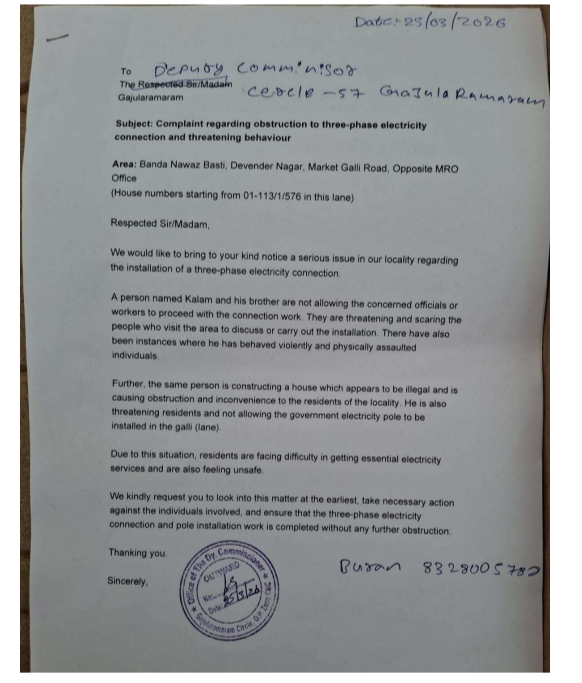 Date:- 25/03/2026
To Deputy Comminisor
The Respected Sir/Madam
Circle - 57 GaJula Ramaram
Gajularamaram
Subject: Complaint regarding obstruction to three-phase electricity
connection and threatening behaviour
Area: Banda Nawaz Basti, Devender Nagar, Market Galli Road, Opposite MRO
Office
(House numbers starting from 01-113/1/576 in this lane)
Respected Sir/Madam,
We would like to bring to your kind notice a serious issue in our locality regarding
the installation of a three-phase electricity connection.
A person named Kalam and his brother are not allowing the concerned officials or
workers to proceed with the connection work. They are threatening and scaring the
people who visit the area to discuss or carry out the installation. There have also
been instances where he has behaved violently and physically assaulted
individuals.
Further, the same person is constructing a house which appears to be illegal and is
causing obstruction and inconvenience to the residents of the locality. He is also
threatening residents and not allowing the government electricity pole to be
installed in the galli (lane).
Due to this situation, residents are facing difficulty in getting essential electricity
services and are also feeling unsafe.
We kindly request you to look into this matter at the earliest, take necessary action
against the individuals involved, and ensure that the three-phase electricity
connection and pole installation work is completed without any further obstruction.
Thanking you.
Sincerely,
Buran 8328005782
Office of The Dy. Commissioner
OUTWARD
No:
Date: 25/3/26
Gajularamaram Circle,